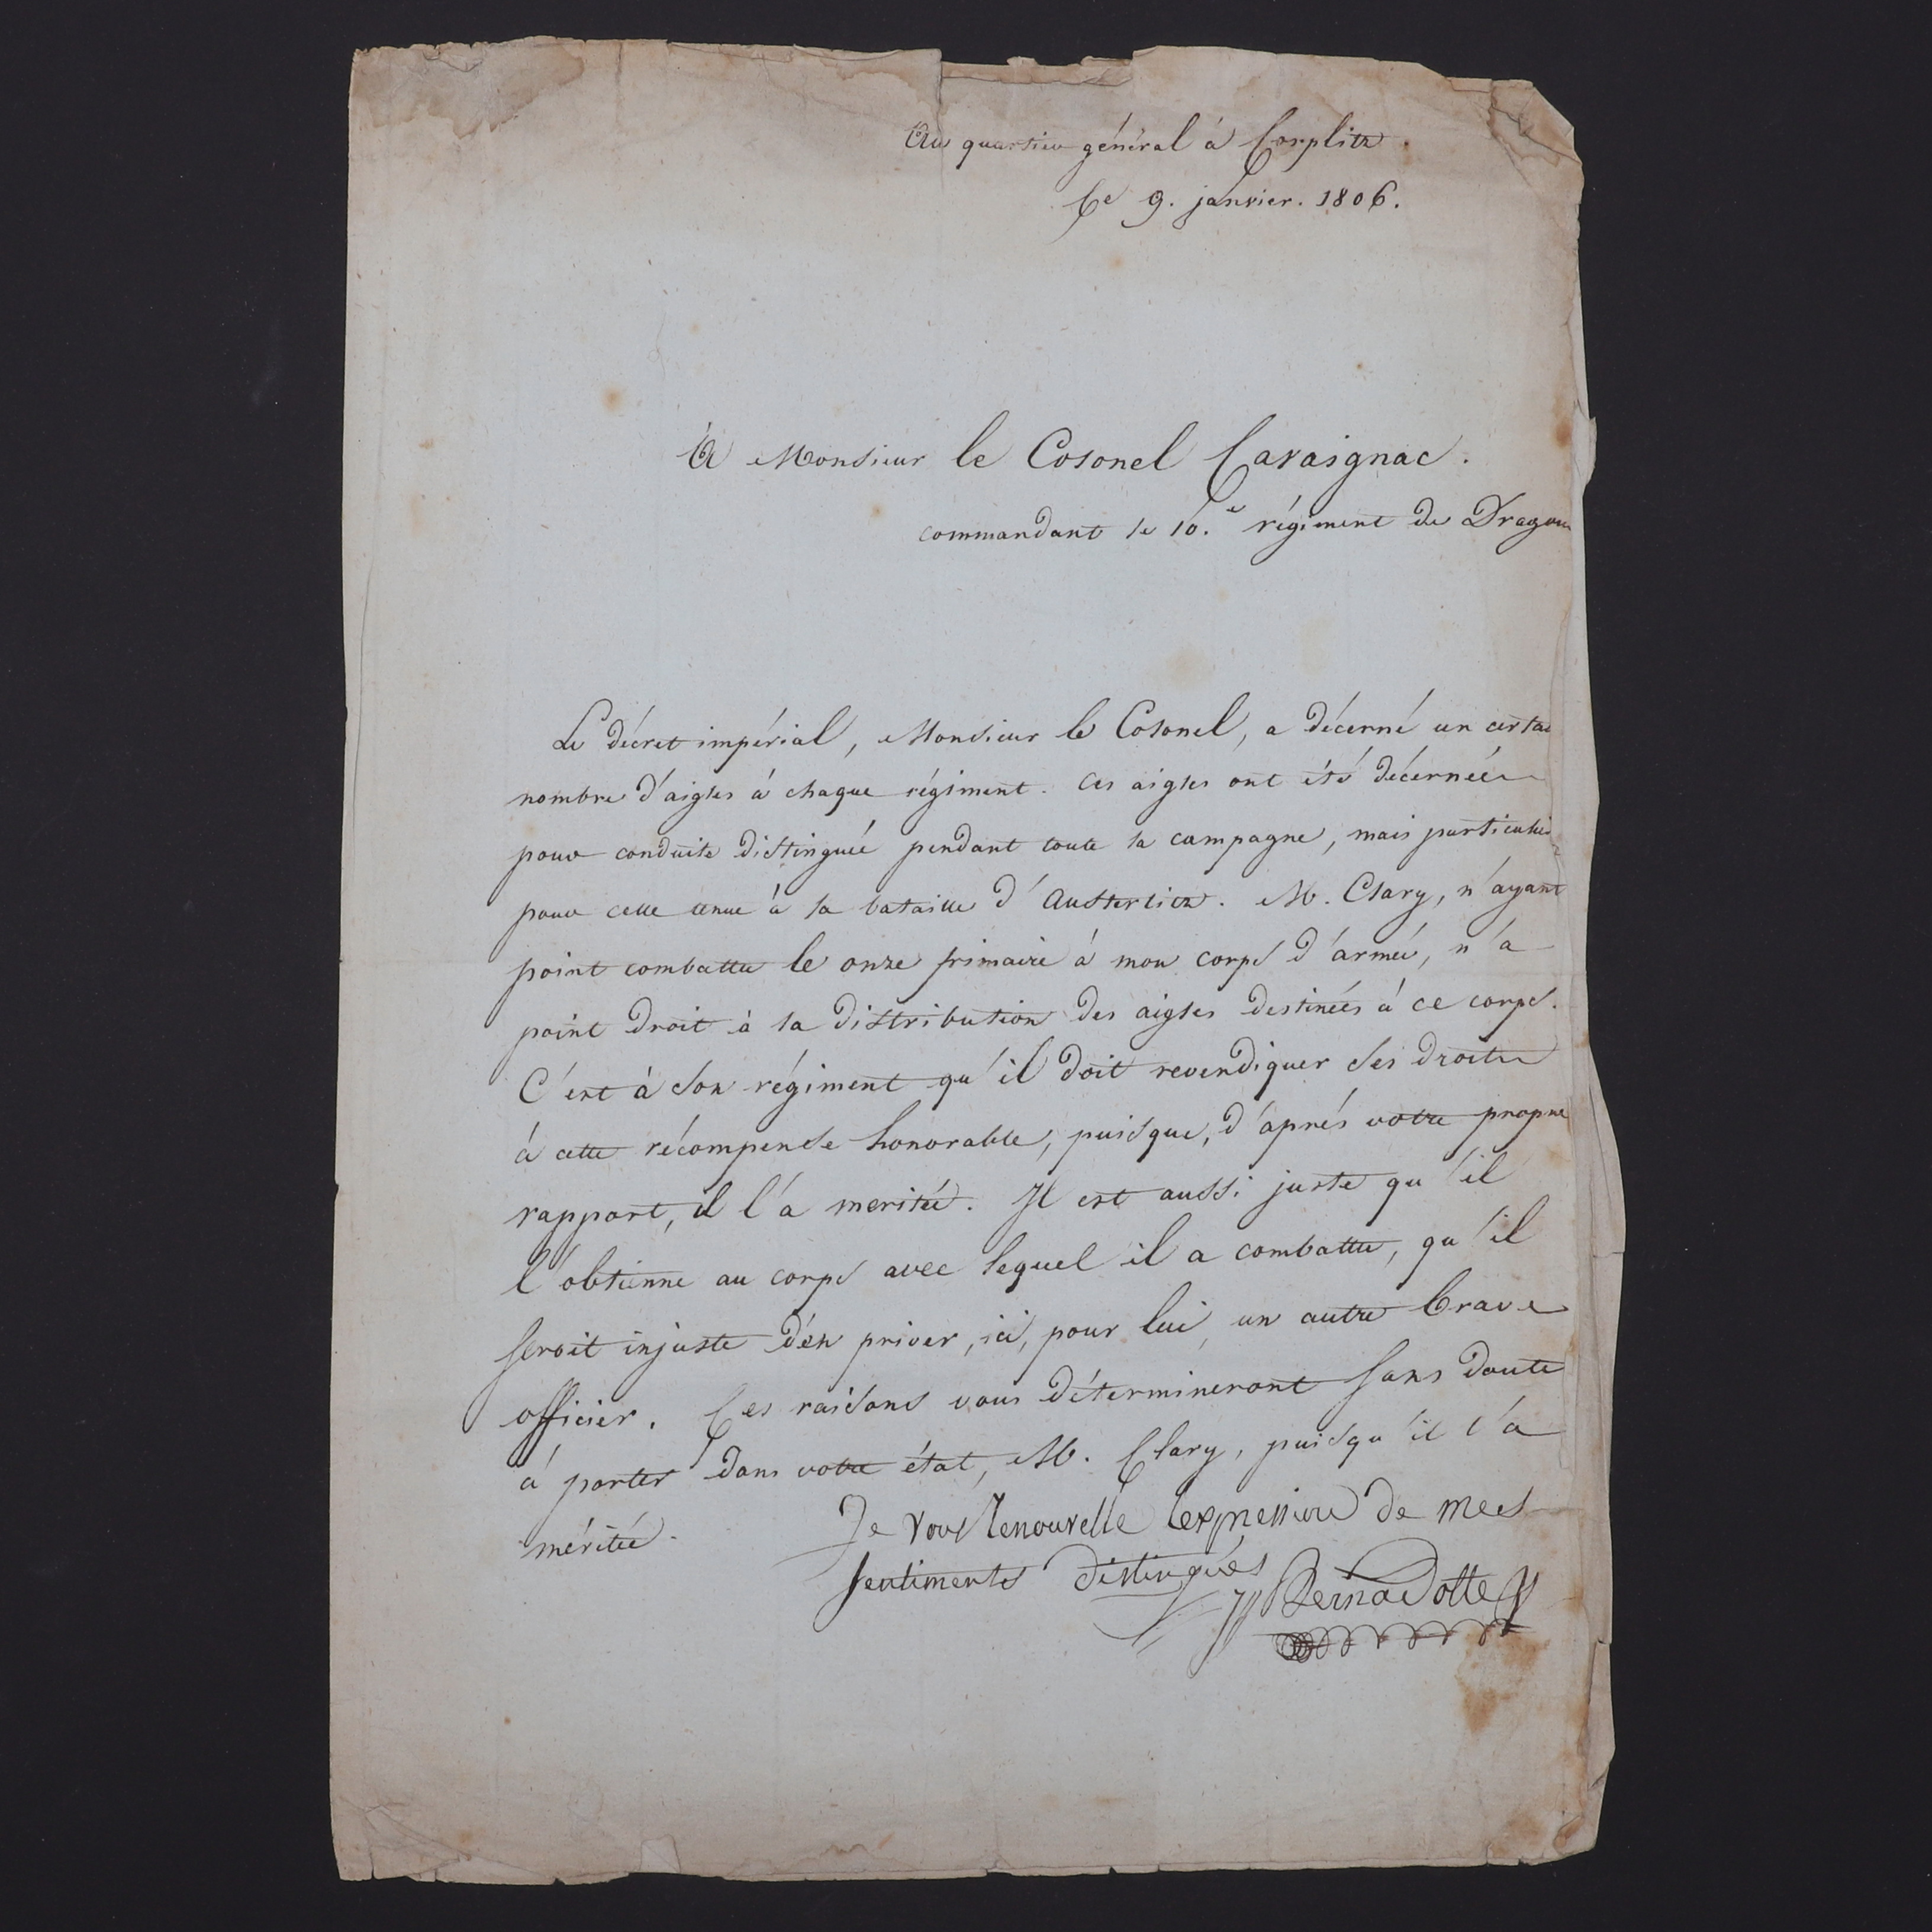 Au quartier général à Corplitz.
Ce 9. janvier. 1806.
A Monsieur le Colonel Cavaignac.
commandant le 10.e régiment de Dragons
Le décret impérial, Monsieur le Colonel, a décerné un certai
nombre d'aigles à chaque régiment. Ces aigles ont été décernées
pour conduite distinguée pendant toute la campagne, mais particuliè
pour celle tenue à la bataille d'Austerlitz. M. Clary, n'ayant
point combattu le onze frimaire à mon corps d'armée, n'a
point droit à la distribution des aigles destinées à ce corps.
C'est à son régiment qu'il doit revendiquer ses droits
à cette récompense honorable, puisque, d'après votre propre
rapport, il l'a meritée. Il est aussi juste qu'il
l'obtienne au corps avec lequel il a combattu, qu'il
seroit injuste d'en priver, ici, pour lui, un autre brave
officier. Ces raisons vous détermineront sans doute
à porter dans votre état, M. Clary, puisqu'il l'a
méritée.
Je vous renouvelle l'expression de mes
sentiments distingués
Bernadotte